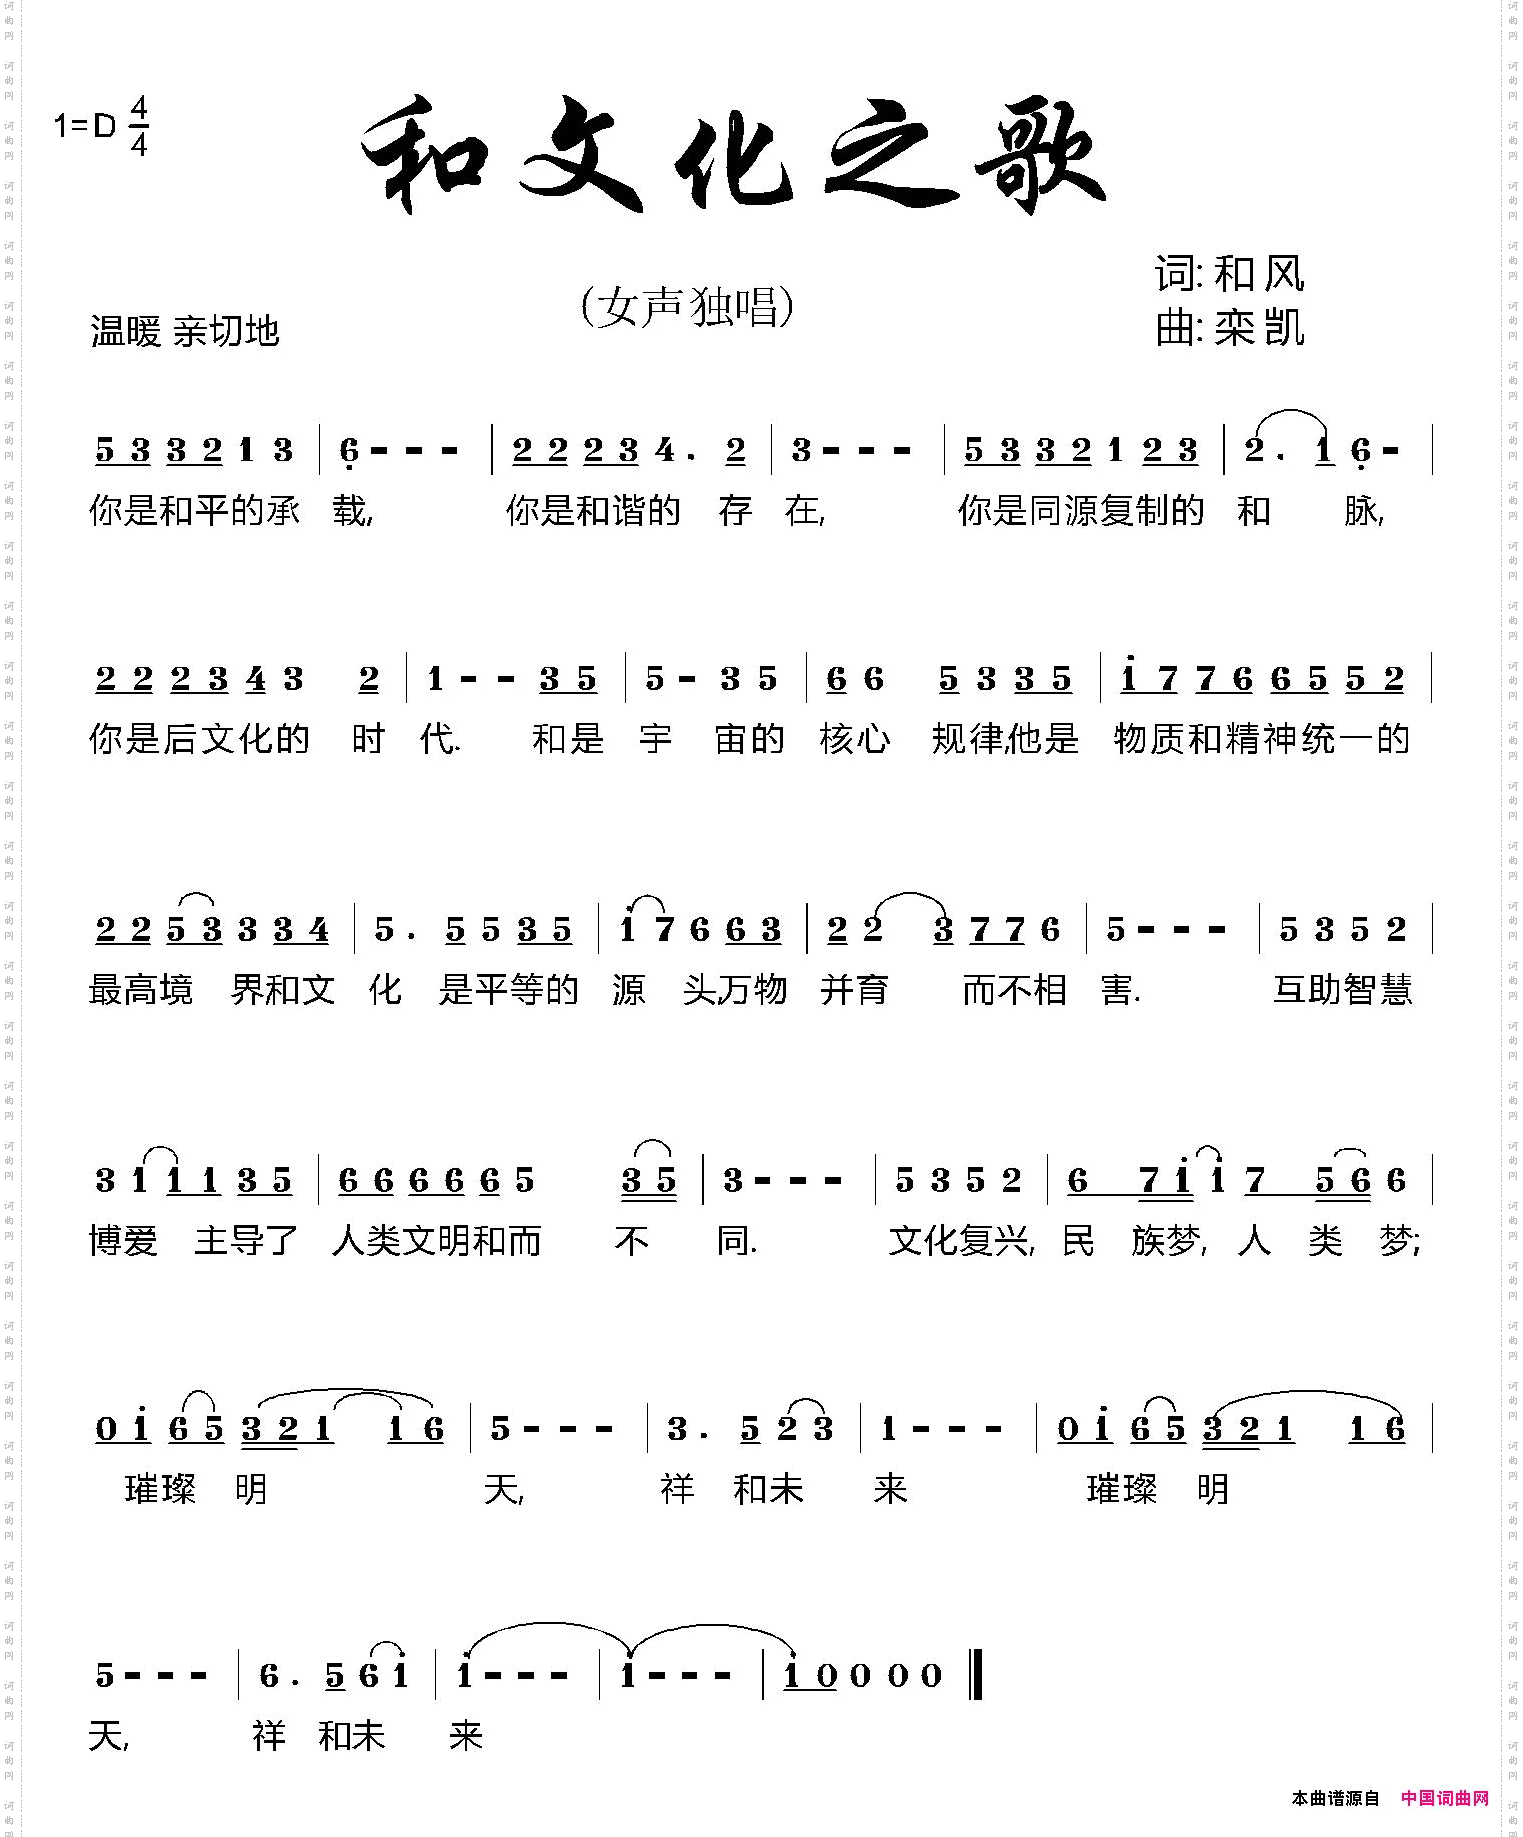 1=D 4/4
和文化之歌
词: 和风
(女声独唱)
曲: 栾凯
温暖 亲切地
5 3 3 2 1 3 | 6 - - - | 2 2 2 3 4 . 2 | 3 - - - | 5 3 3 2 1 2 3 | 2 . 1 6 - |
你是和平的承 载, 你是和谐的 存 在, 你是同源复制的 和 脉,
2 2 2 3 4 3 2 | 1 - - 3 5 | 5 - 3 5 | 6 6 5 3 3 5 | 1 7 7 6 6 5 5 2 |
你是后文化的 时 代. 和是 宇 宙的 核心 规律,他是 物质和精神统一的
2 2 5 3 3 3 4 | 5 . 5 5 3 5 | 1 7 6 6 3 | 2 2 3 7 7 6 | 5 - - - | 5 3 5 2 |
最高境 界和文 化 是平等的 源 头,万物 并育 而不相 害. 互助智慧
3 1 1 1 3 5 | 6 6 6 6 6 5 3 5 | 3 - - - | 5 3 5 2 | 6 7 1 1 7 5 6 6 |
博爱 主导了 人类文明和而 不 同. 文化复兴, 民 族梦, 人 类 梦;
0 1 6 5 3 2 1 1 6 | 5 - - - | 3 . 5 2 3 | 1 - - - | 0 1 6 5 3 2 1 1 6 |
璀璨 明 天, 祥 和未 来 璀璨 明
5 - - - | 6 . 5 6 1 | 1 - - - | 1 - - - | 1 0 0 0 0 ‖
天, 祥 和未 来
本曲谱源自 中国词曲网